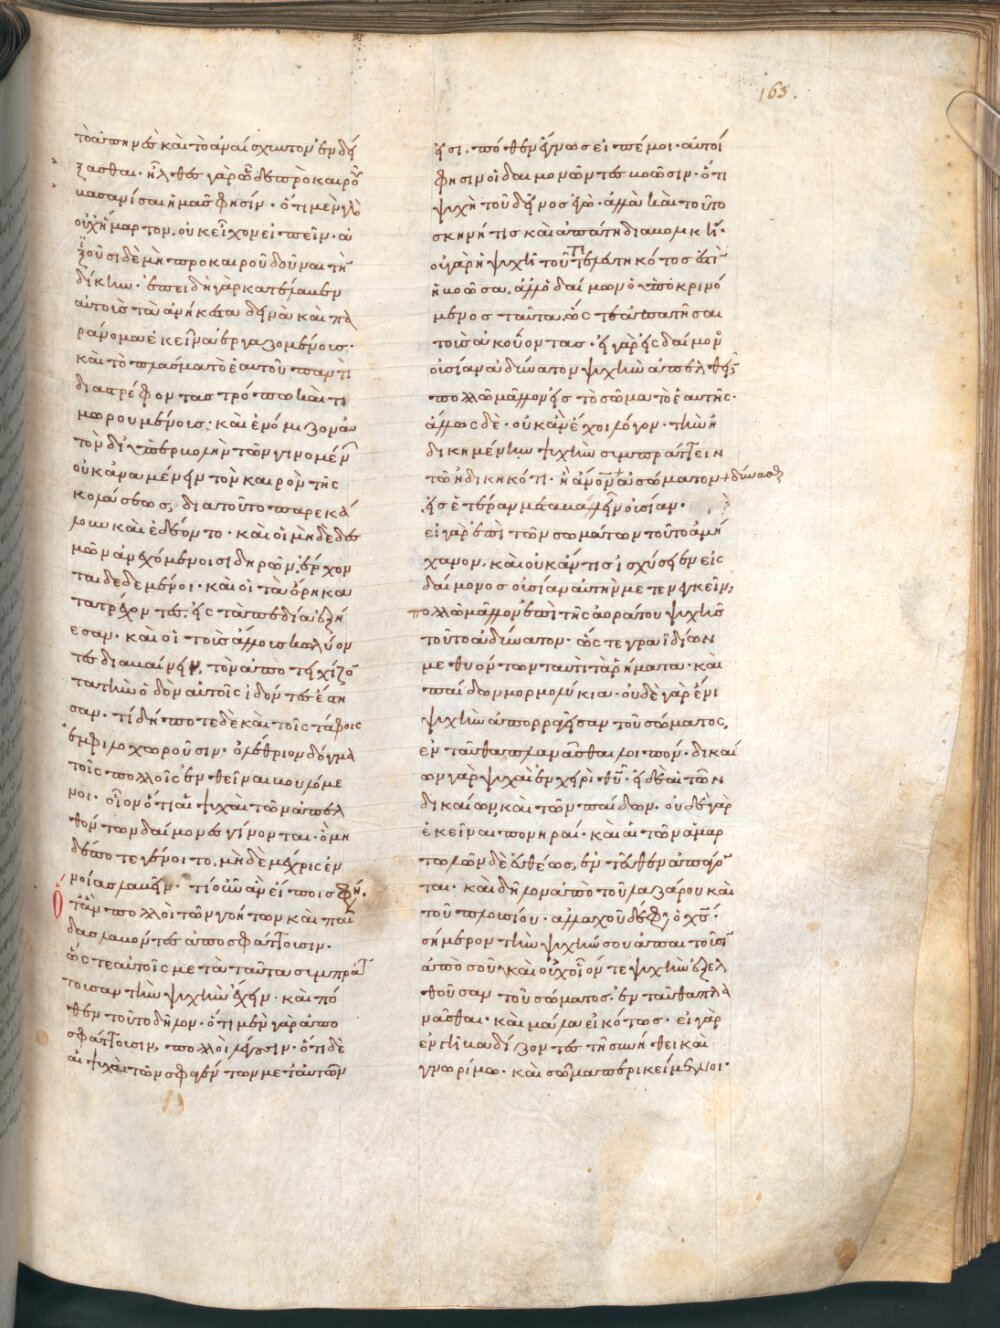 165.
τὸ ἀπηνὲς καὶ τὸ ἀναίσχυντον ἐνδεί
ξασθαι· ἦλθες γὰρ ὧδε πρὸ καιροῦ
βασανίσαι ἡμᾶς φησίν· ὅτι μὲν γὰρ
οὐχ ἥμαρτον, οὐκ εἶχον εἰπεῖν· ἀ
ξιοῦσι δὲ μὴ πρὸ καιροῦ δοῦναι τὴν
δίκην· ἐπειδὴ γὰρ κατέλαβεν
αὐτοὺς τὰ ἀνήκεστα δεινὰ καὶ πα
ράνομα ἐκεῖνα ἐργαζομένους·
καὶ τὸ πλάσμα τὸ ἑαυτοῦ παντὶ
διαστρέφοντας τρόπω καὶ τι
μωρουμένους· καὶ ἐνόμιζον αυ
τὸν δι' ὑπερβολὴν τῶν γινομένων
οὐκ ἀναμένειν τὸν καιρὸν τῆς
κολάσεως, διὰ τοῦτο παρεκά
λουν καὶ ἐδέοντο· καὶ οἱ μηδὲ δε
σμῶν ἀνεχόμενοι σιδηρῶν, ἔρχον
ται δεδεμένοι· καὶ οἱ τὰ ὄρη κα
τατρέχοντες, εἰς τὰ πεδία ἐξῄ
εσαν· καὶ οἱ τοὺς ἄλλους κωλύον
τες διαβαίνειν, τὸν ἀποτειχίζον
τα τὴν ὁδὸν αὐτοῖς ἰδόντες ἔστη
σαν· τί δήποτε δὲ καὶ τοῖς τάφοις
ἐμφιλοχωροῦσιν· ὀλέθριον δόγμα
τοῖς πολλοῖς ἐνθεῖναι βουλόμε
νοι· οἷον ὅτι αἱ ψυχαὶ τῶν ἀπελ
θόντων δαίμονες γίνονται· ὃ μη
δέποτε γένοιτο, μηδὲ μέχρις ἐν
νοίας λαβεῖν· τί οὖν ἂν εἴποις φησίν·
ὅταν πολλοὶ τῶν γοήτων καὶ παι
δας λαβόντες ἀποσφάττουσιν·
ὥστε αὐτοῖς μετὰ ταῦτα συμπράτ
τουσαν τὴν ψυχὴν ἔχειν· καὶ πό
θεν τοῦτο δῆλον· ὅτι μὲν γὰρ ἀπο
σφάττουσιν, πολλοὶ λέγουσιν· ὅτι δὲ
αἱ ψυχαὶ τῶν σφαγέντων μετ' αὐτῶν
εἰσι, πόθεν ἔγνως εἰπέ μοι· αὐτοί
φησιν οἱ δαιμονῶντες βοῶσιν· ὅτι
ψυχὴ τοῦ δεῖνος ἐγώ· ἀλλὰ καὶ τοῦτο
σκηνή τις καὶ ἀπάτη διαβολική·
οὐ γὰρ ἡ ψυχὴ τοῦ τετελευτηκότος ἐστὶν
ἡ βοῶσα, ἀλλ' ὁ δαίμων ὁ ὑποκρινό
μενος ταῦτα, ὥστε ἀπατῆσαι
τοὺς ἀκούοντας· εἰ γὰρ εἰς δαίμονος
οὐσίαν ἀδύνατον ψυχὴν ἀπελθεῖν
πολλῶ μᾶλλον εἰς τὸ σῶμα τὸ ἑαυτῆς·
ἄλλως δὲ· οὐκ ἂν ἔχοι λόγον· τὴν ἠ
δικημένην ψυχὴν συμπράττειν
τῶ ἠδικηκότι· ἢ ἄνθρωπον ἀσώματον + δύνασθαι
εἰς ἑτέραν μεταβαλεῖν οὐσίαν·
εἰ γὰρ ἐπὶ τῶν σωμάτων τοῦτο ἀμή
χανον, καὶ οὐκ ἄν τις ἰσχύσειεν εἰς
δαίμονος οὐσίαν αὐτὴν μετενεγκεῖν,
πολλῶ μᾶλλον ἐπὶ τῆς ἀοράτου ψυχῆς
τοῦτο ἀδύνατον· ὥστε γραϊδίων
μεθυόντων ταυτὶ τὰ ῥήματα· καὶ
παίδων μορμολύκια· οὐδὲ γὰρ ἔνι
ψυχὴν ἀπορραγεῖσαν τοῦ σώματος,
ἐνταῦθα πλανᾶσθαι λοιπόν· δικαί
ων γὰρ ψυχαὶ ἐν χειρὶ θυ· εἰ δὲ αἱ τῶν
δικαίων, καὶ τῶν παίδων· οὐδὲ γὰρ
ἐκεῖναι πονηραί· καὶ αἱ τῶν ἁμαρ
τωλῶν δὲ εὐθέως, ἐντεῦθεν ἀπάγον
ται· καὶ δῆλον ἀπὸ τοῦ λαζάρου καὶ
τοῦ πλουσίου· ἀλλαχοῦ δέ φησιν ὁ χς·
σήμερον τὴν ψυχήν σου ἀπαιτοῦσιν
ἀπὸ σοῦ· καὶ οὐχ οἷόν τε ψυχὴν ἐξελ
θοῦσαν τοῦ σώματος, ἐνταῦθα πλα
νᾶσθαι· καὶ μάλα εἰκότως· εἰ γὰρ
ἐν γῇ βαδίζοντες τῇ συνήθει καὶ
γνωρίμω· καὶ σῶμα περικείμενοι·